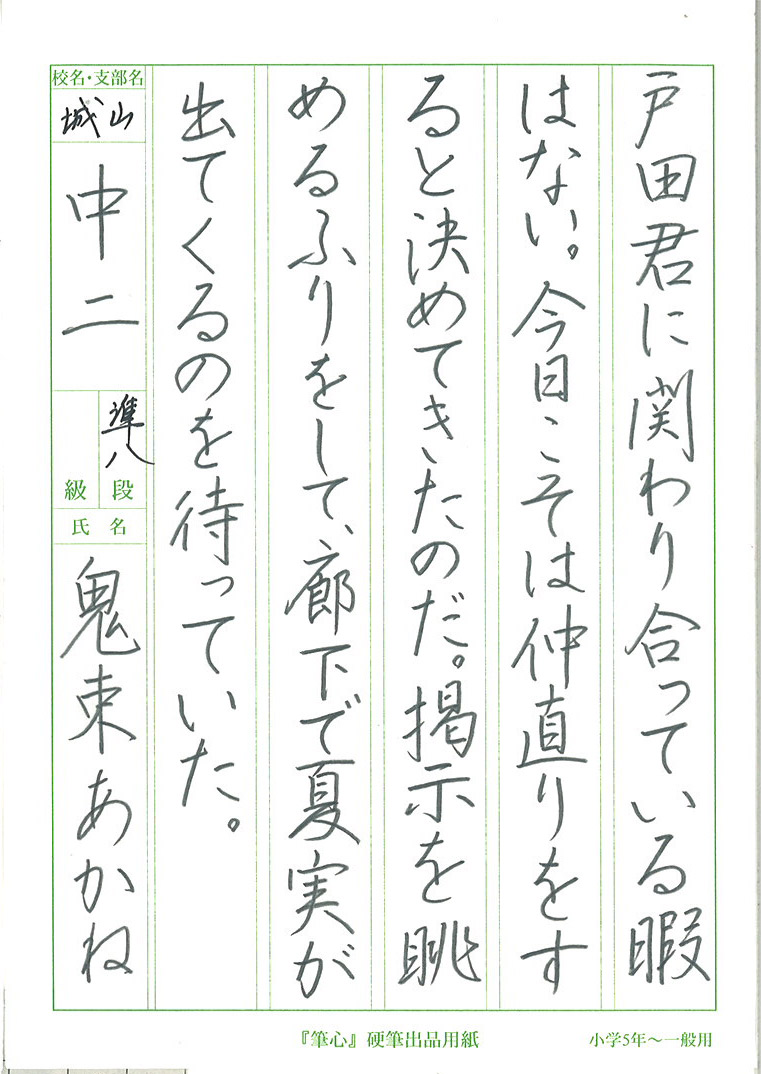 戸田君に関わり合っている暇
はない。今日こそは仲直りをす
ると決めてきたのだ。掲示を眺
めるふりをして、廊下で夏実が
出てくるのを待っていた。
校名・支部名
城山
中二
準八
級 段
氏 名
鬼束あかね
『筆心』硬筆出品用紙
小学5年〜一般用